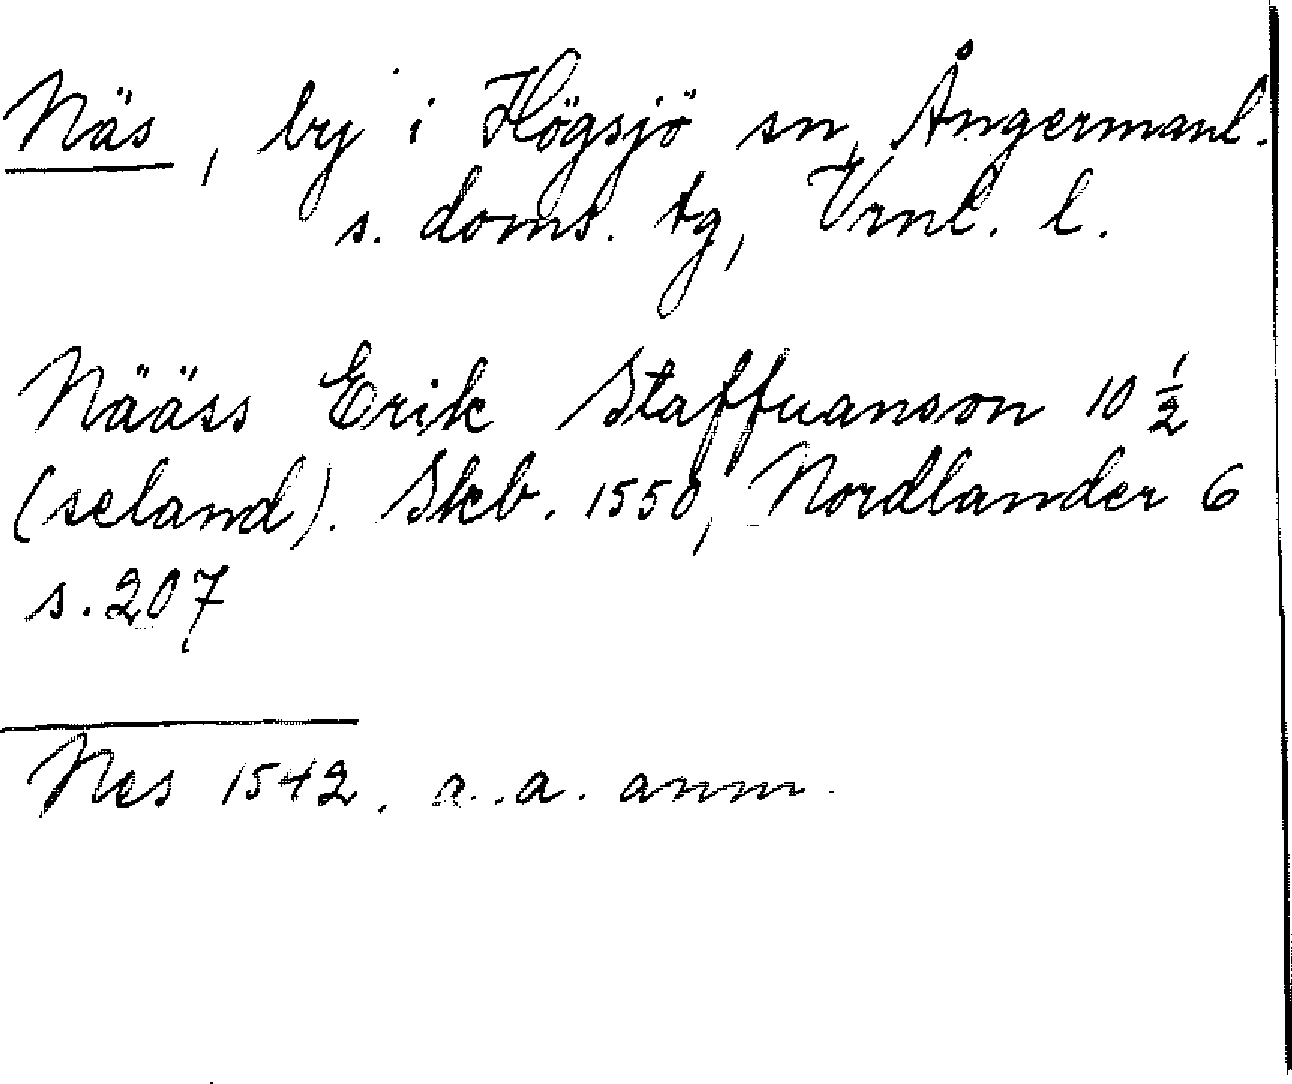 Näs, by i Högsjö sn, Ångermanl.
s. doms. tg, Vrnl. l.
Nääss Erik Staffuanson 10 ½
(seland). Skb. 1550, Nordlander 6
s. 207
Nes 1542. a. a. anm.